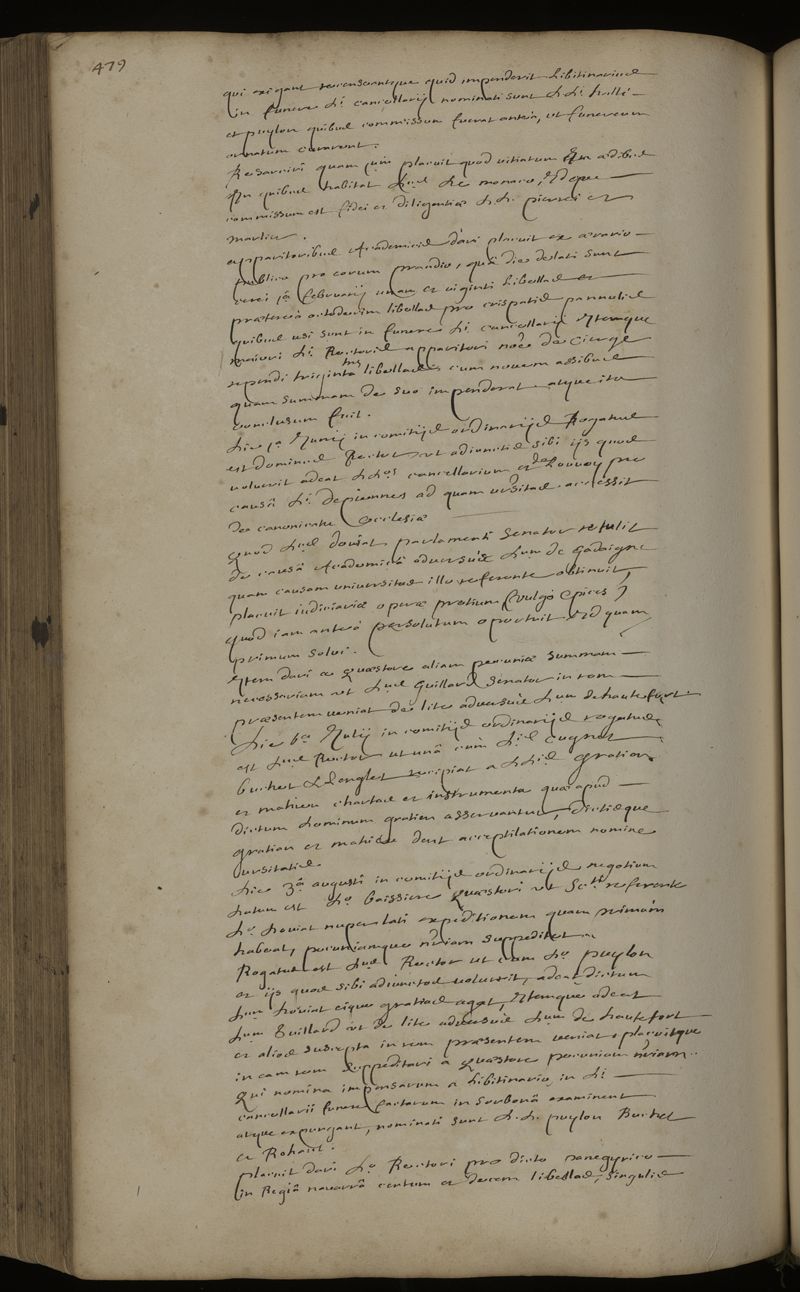 479
qui exigant recenseantque quid impenderit Libitinarius
in funere D.i cancellarij nominati sunt D.D.
et puylon quibus commissum fuerat antea, ut funereum
ornatum curarent.
Resarciri quam placuit quod vitiatum in ædibus
in quibus habitat D.us de monaco, idque
commissum est fidei et diligentiæ D.D. pierres et
marlier.
apparitoribus Academicis dari placuit ex ærario
publico pro eorum prandio, quâ die delati sunt
cerei 1a februarij unam et viginti libellas et
prætereà octodecim libellas pro crispatis pannulis
quibus usi sunt in funere D.i cancellarij itemque
maiori D.i Rectoris apparitori noe de Cierge
rependi triginta tres libellas cum novem assibus
quam summam de suo impenderat atque ita
conclusum fuit.
Die 1a Junij in comitijs ordinarijs Rogatus
est Dominus Rector ut adiunctis sibi ijs quos
voluerit adeat D.D.os cancellarium et de Louvoy pro
causâ D.i depiennes ad quam vrsitas accessit
de canonicatu Ecclesiæ
Quod D.us doviat parlamenti Senator retulit
de causâ Academicâ adversus D.um de Gadaigne
quam causam universitas illo referente obtinuit,
placuit iudiciariæ operæ pretium (vulgò Epices)
quod iam anteà persolutum oportuit id quam
primum solvi.
Item dari a Quæstore aliam pecuniæ summam
necessariam ut D.us Guillard Senator in rem
præsentem veniat de lite adversus D.um de hautefort
Die 6a Julij in comitijs ordinarijs rogatus
est D.us Rector ut unâ cum D.is Cugnet
buchet & Lenglet recipiat a D.D.is Gratien
et mahieu chartas et instrumenta quæ apud
dictum dominum gratien asservantur, dictisque
gratien et mahieu det acceptilationem nomine
vrsitatis
Die 3a augusti in comitijs ordinarijs negotium
datum est D.o baissiere Quæstori ut Sc.ti referente
D.o doviat nuper lati expeditionem quam primùm
habeat, pecuniamque nriam suppeditet
Rogatus est D.us Rector ut cum D.o puylon
et ijs quos sibi adiunctos voluerit, adeat dictum
D.um doviat eique gratias agat, itemque adeat
D.um Guillard ut de lite adversus D.um de hautefort
et alios suscepta in rem præsentem veniat placuitque
in eam rem suppeditari a Quæstore pecuniam nriam.
Qui nomina impensarum a libitinario in D.i
cancellarii funere factarum in Sorbonâ examinent
atque expungant, nominati sunt D.D. puylon Buchet
et Rohault.
placuit dari D.o Rectori pro dicto panegyrico
in Regiâ navarrâ centum et decem libellas, singulis